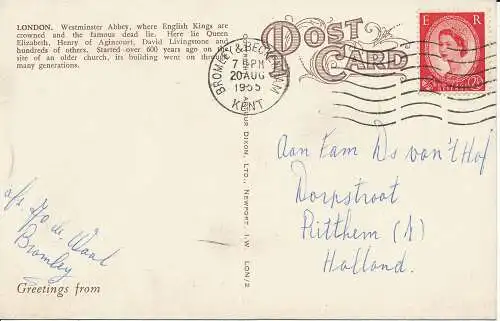 LONDON. Westminster Abbey, where English Kings are
crowned and the famous dead lie. Here lie Queen
Elizabeth, Henry of Agincourt, David Livingstone and
hundreds of others. Started over 600 years ago on the
site of an older church, its building went on through
many generations.
POST
CARD
BROMLEY & BECKENHAM
7 PM
20 AUG
1955
KENT
E R
2½
ARTHUR DIXON, LTD., NEWPORT, I.W. LON/2
Aan Fam Ds van't Hof
Dorpstroat
Ritthem (
Holland.
afz. de Waal
Bromley
Greetings from